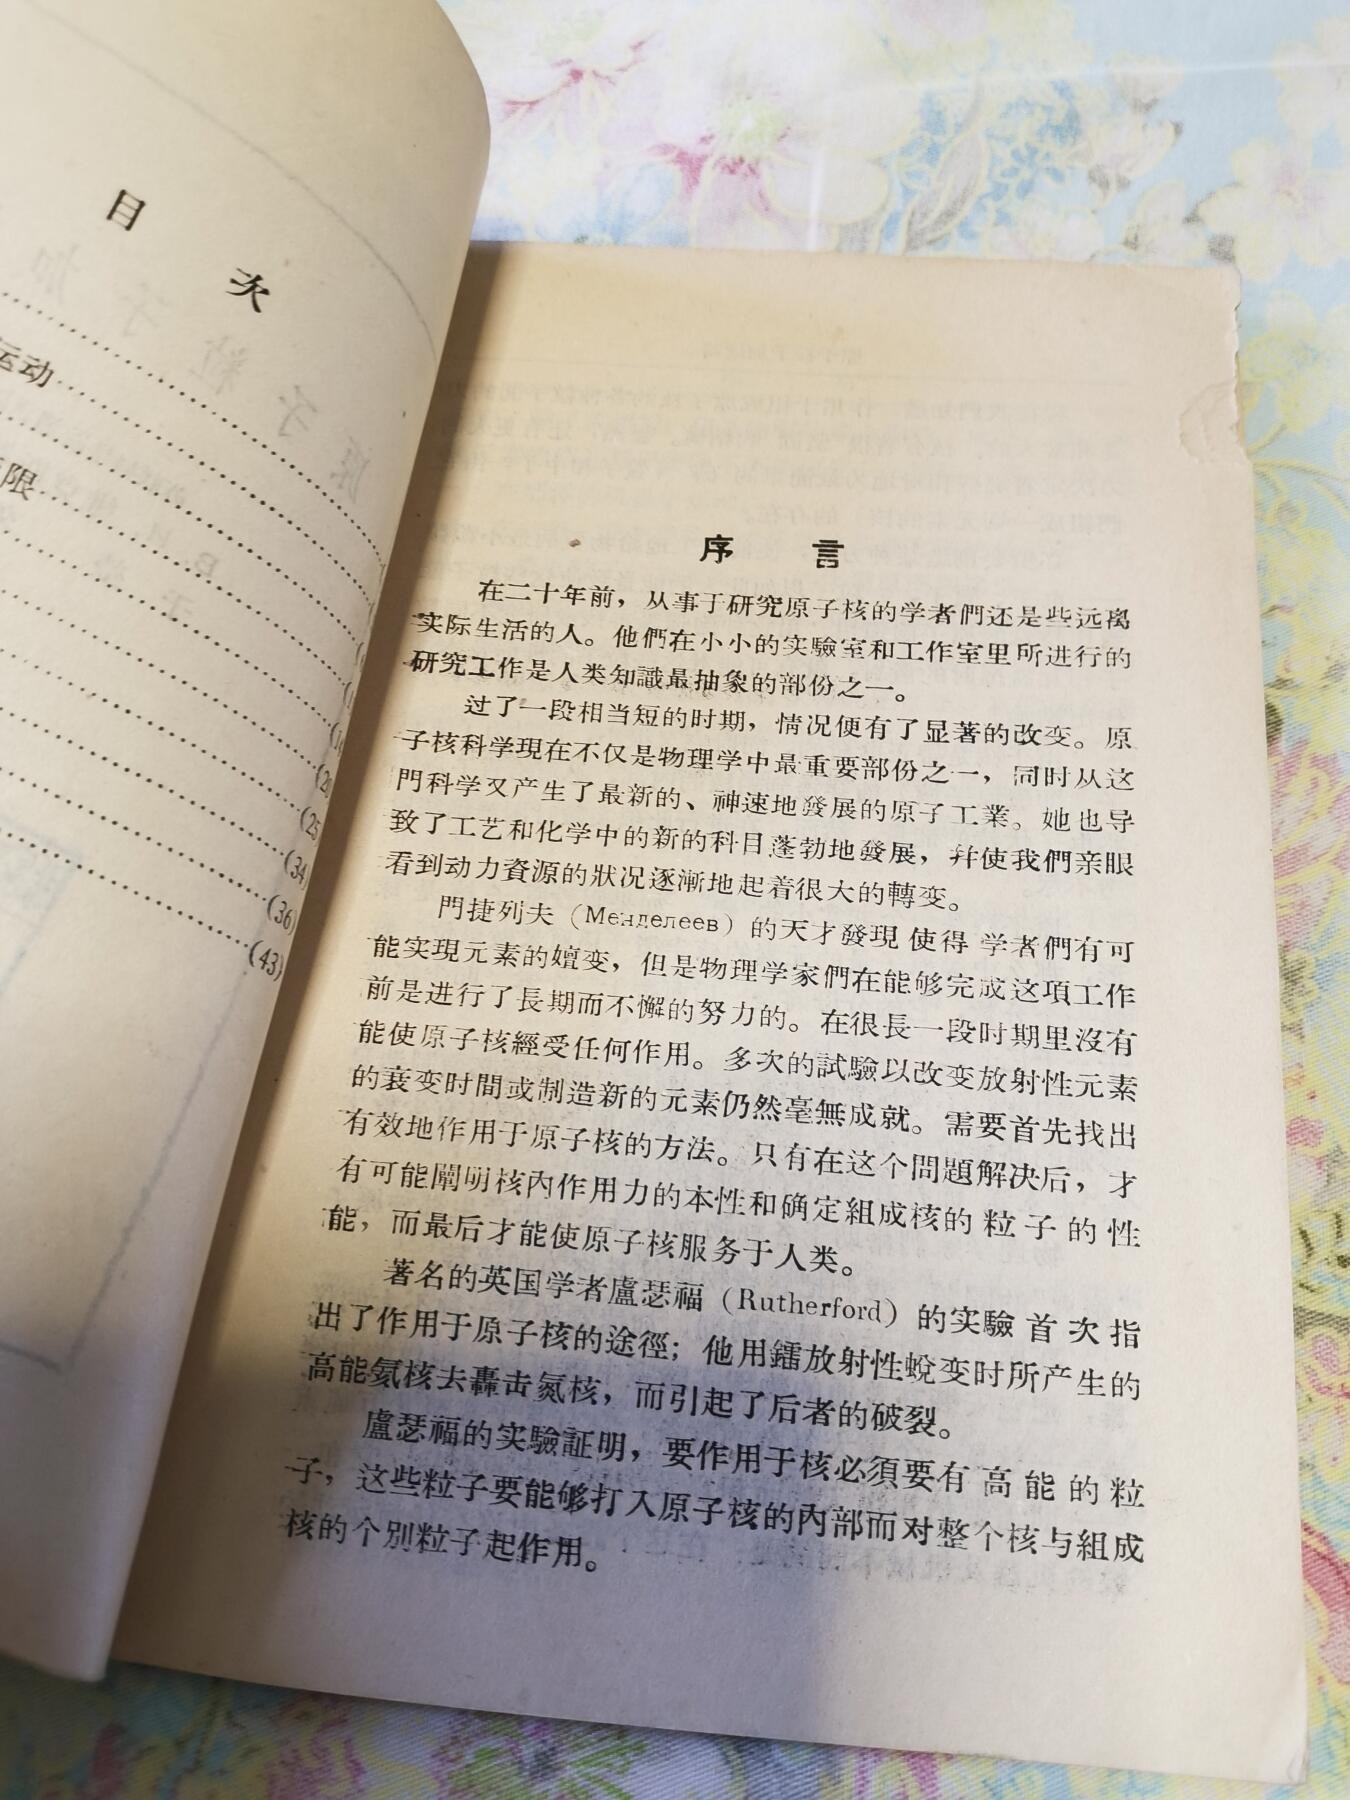 目 次
运动
限
(25
(34)
(36)
(43)
序 言
在二十年前，从事于研究原子核的学者們还是些远离
实际生活的人。他們在小小的实驗室和工作室里所进行的
研究工作是人类知識最抽象的部份之一。
过了一段相当短的时期，情况便有了显著的改变。原
子核科学現在不仅是物理学中最重要部份之一，同时从这
門科学又产生了最新的、神速地發展的原子工業。她也导
致了工艺和化学中的新的科目蓬勃地發展，幷使我們亲眼
看到动力資源的狀况逐漸地起着很大的轉变。
門捷列夫（Менделеев）的天才發現使得学者們有可
能实現元素的嬗变，但是物理学家們在能够完成这項工作
前是进行了長期而不懈的努力的。在很長一段时期里沒有
能使原子核經受任何作用。多次的試驗以改变放射性元素
的衰变时間或制造新的元素仍然毫無成就。需要首先找出
有效地作用于原子核的方法。只有在这个問題解决后，才
有可能闡明核內作用力的本性和确定組成核的粒子的性
能，而最后才能使原子核服务于人类。
著名的英国学者盧瑟福（Rutherford）的实驗首次指
出了作用于原子核的途徑；他用鐳放射性蛻变时所产生的
高能氦核去轟击氮核，而引起了后者的破裂。
盧瑟福的实驗証明，要作用于核必須要有高能的粒
子，这些粒子要能够打入原子核的內部而对整个核与組成
核的个別粒子起作用。